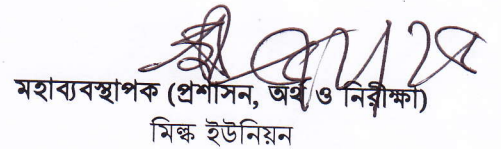 মহাব্যবস্থাপক (প্রশাসন, অর্থ ও নিরীক্ষা)
মিল্ক ইউনিয়ন